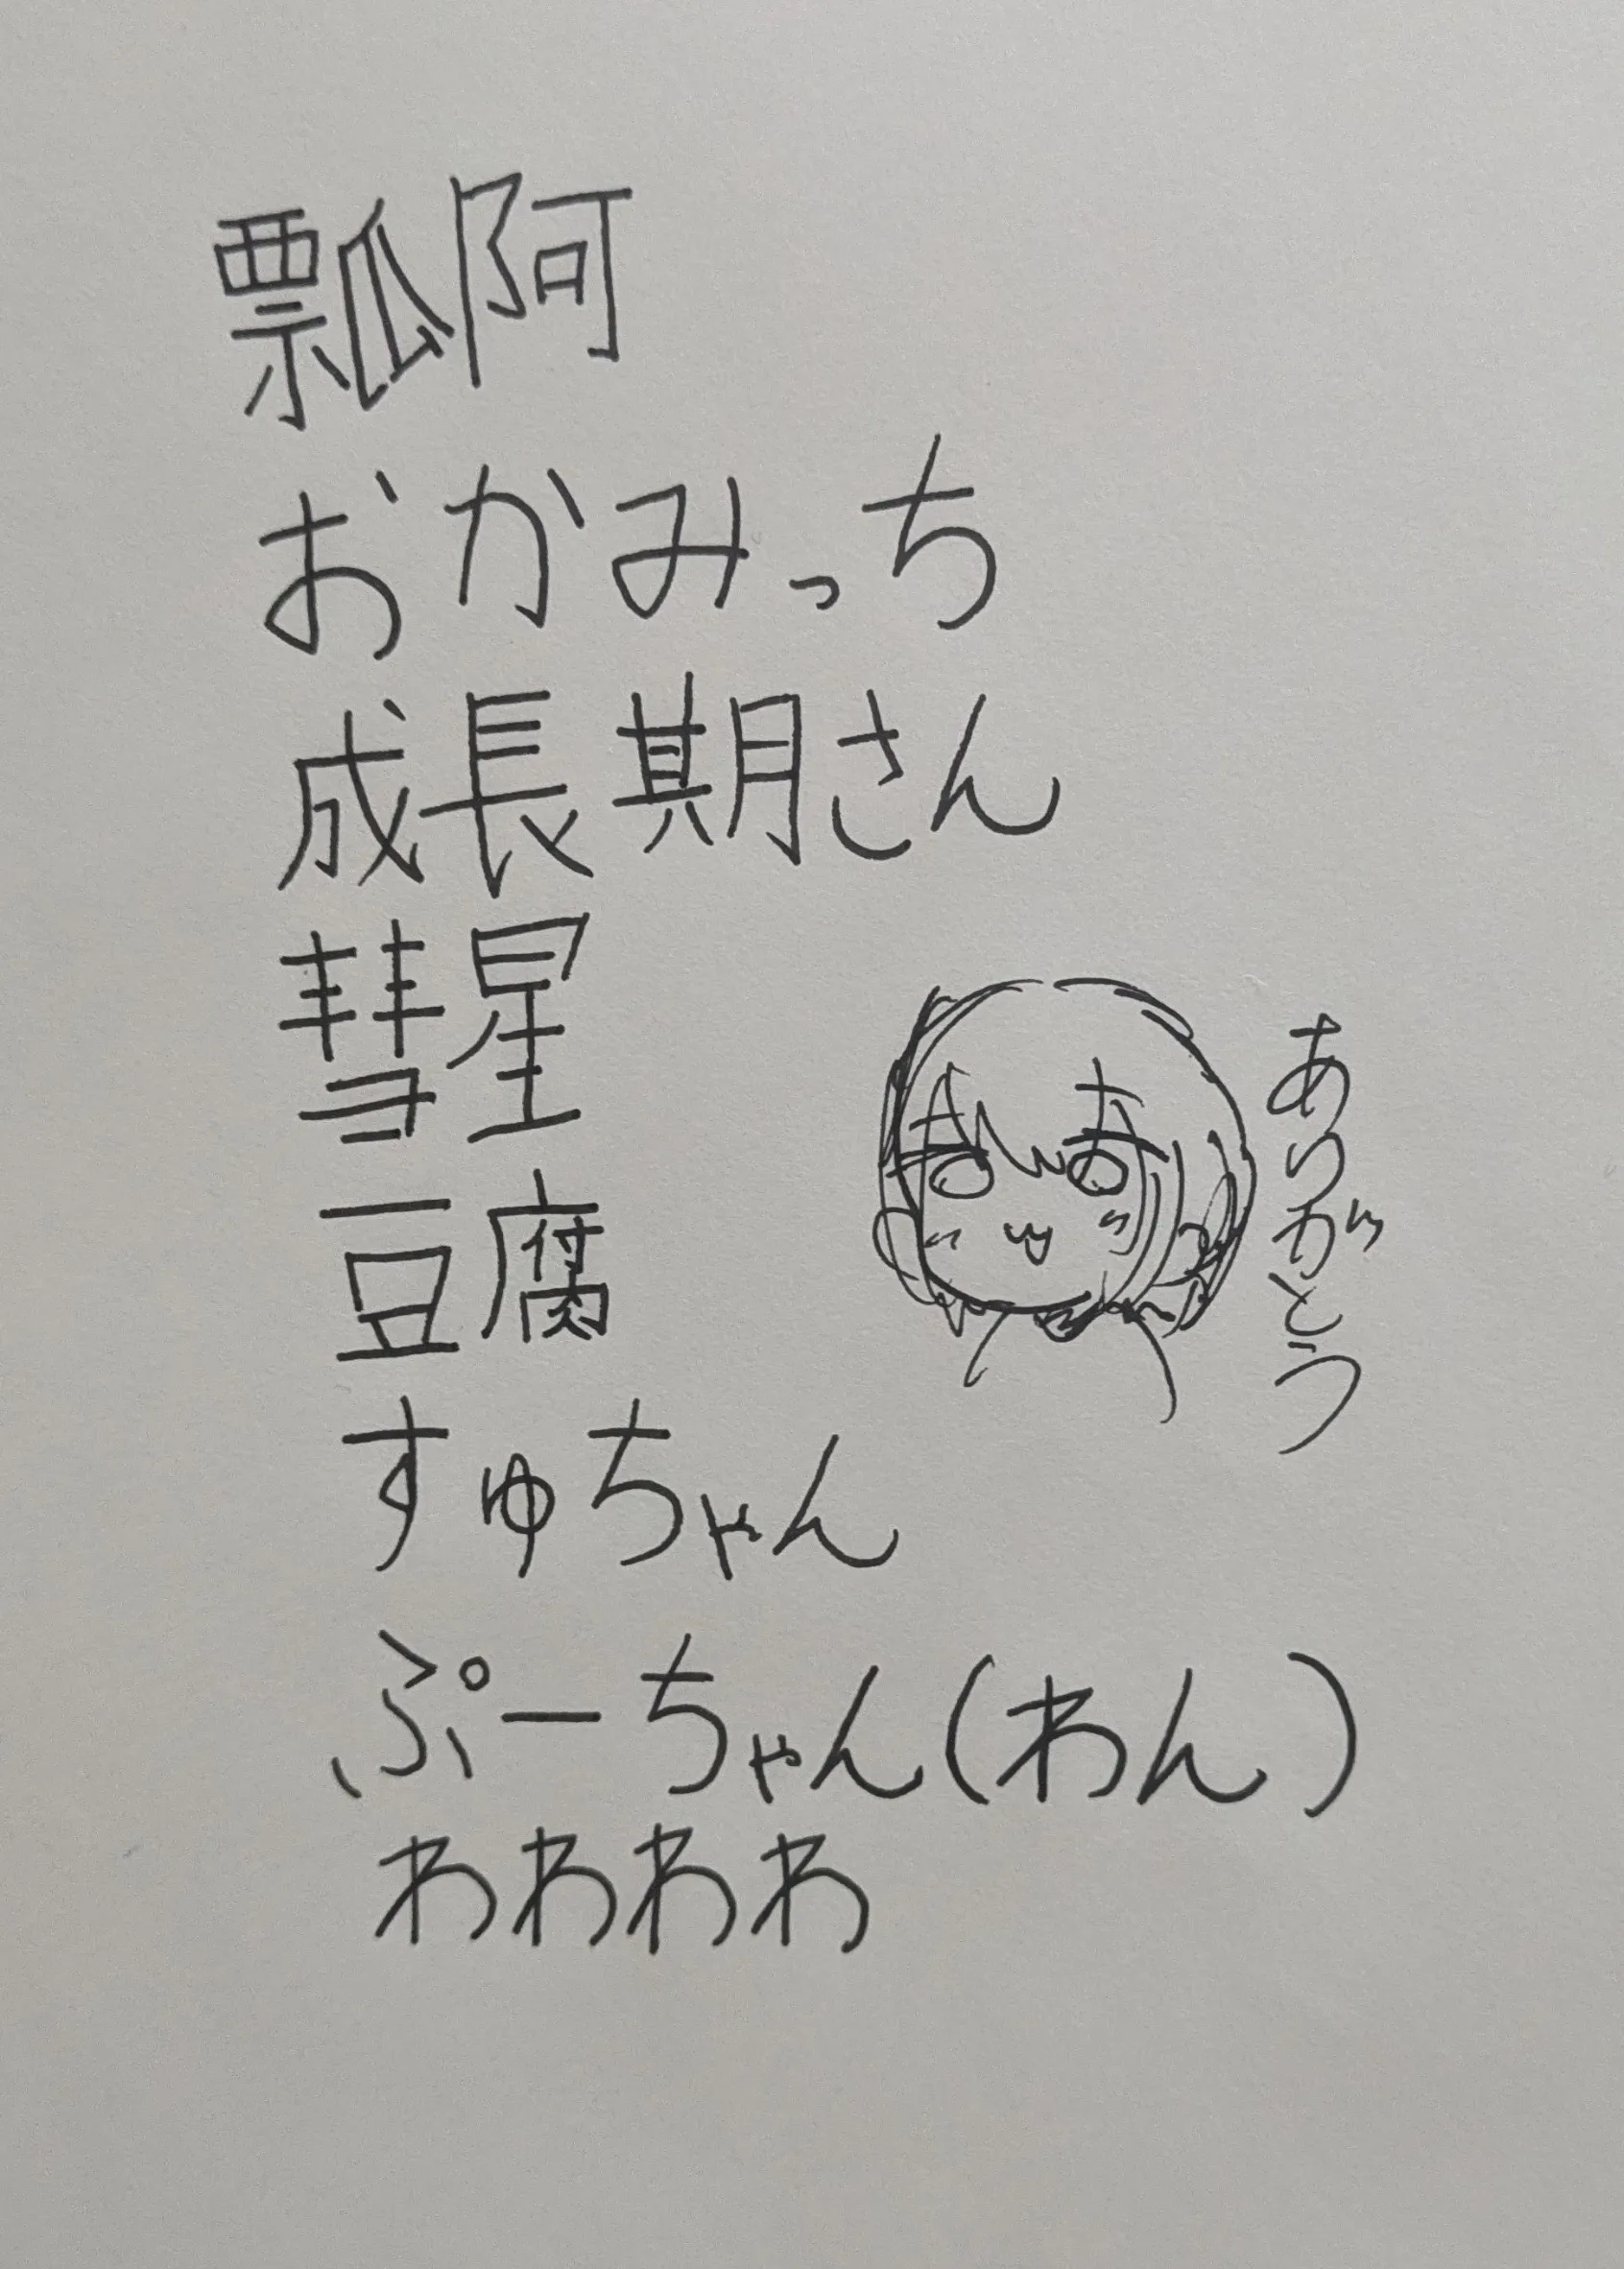 瓢阿
おかみっち
成長期さん
彗星
豆腐
すゅちゃん
ぷーちゃん(わん)
わわわわ
ありがとう